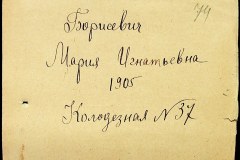 74
Борисевич
Мария Игнатьевна
1905
Колодезная N 37